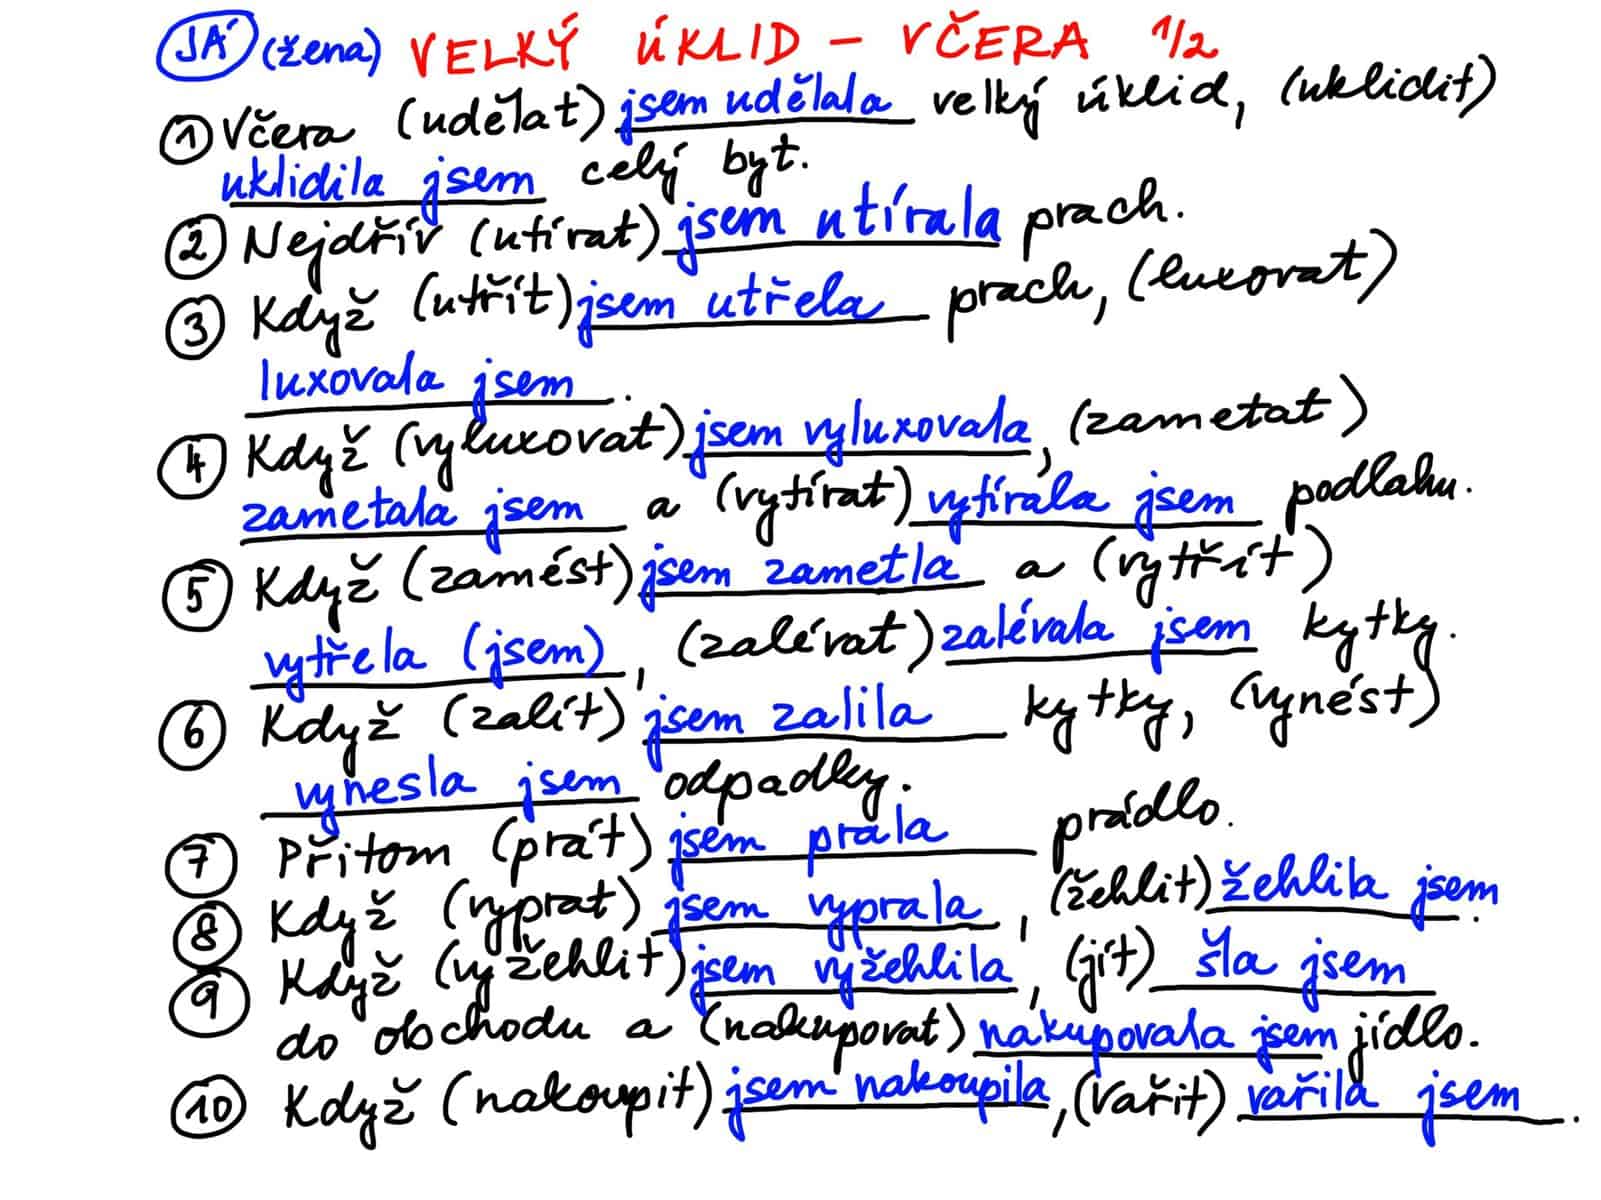 JÁ (žena) VELKÝ ÚKLID – VČERA 1/2
① Včera (udělat) jsem udělala velký úklid, (uklidit)
uklidila jsem celý byt.
② Nejdřív (utírat) jsem utírala prach.
③ Když (utřít) jsem utřela prach, (luxovat)
luxovala jsem.
④ Když (vyluxovat) jsem vyluxovala, (zametat)
zametala jsem a (vytírat) vytírala jsem podlahu.
⑤ Když (zamést) jsem zametla a (vytřít)
vytřela (jsem), (zalévat) zalévala jsem kytky.
⑥ Když (zalít) jsem zalila kytky, (vynést)
vynesla jsem odpadky.
⑦ Přitom (prát) jsem prala prádlo.
⑧ Když (vyprat) jsem vyprala, (žehlit) žehlila jsem.
⑨ Když (vyžehlit) jsem vyžehlila, (jít) šla jsem
do obchodu a (nakupovat) nakupovala jsem jídlo.
⑩ Když (nakoupit) jsem nakoupila, (vařit) vařila jsem.